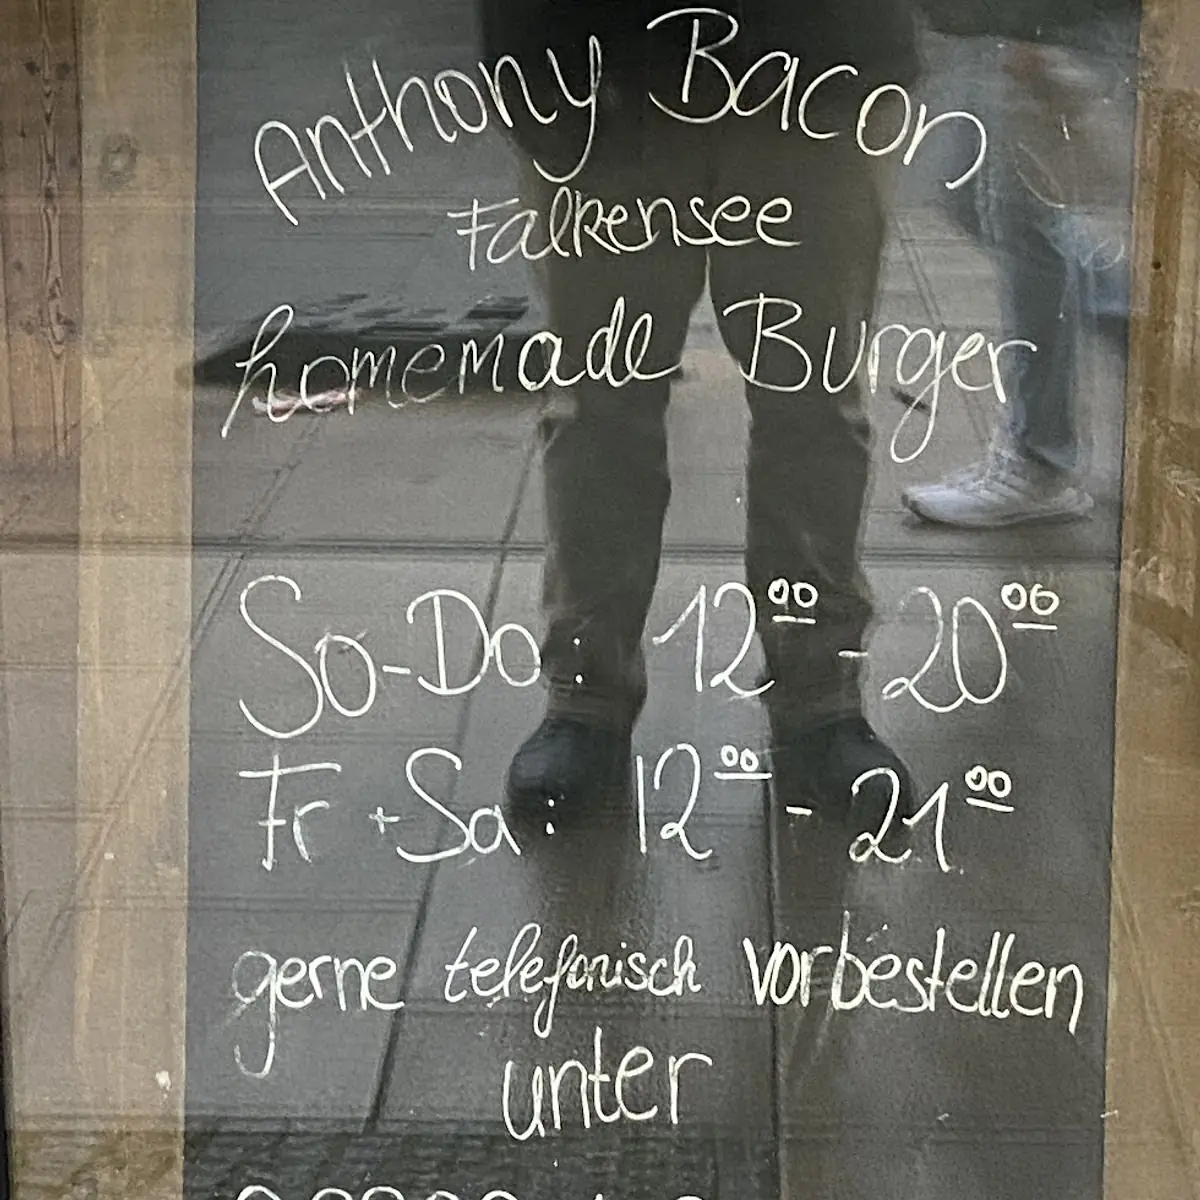 Anthony Bacon
Falkensee
homemade Burger
So-Do: 12⁰⁰ - 20⁰⁰
Fr + Sa: 12⁰⁰ - 21⁰⁰
gerne telefonisch vorbestellen
unter